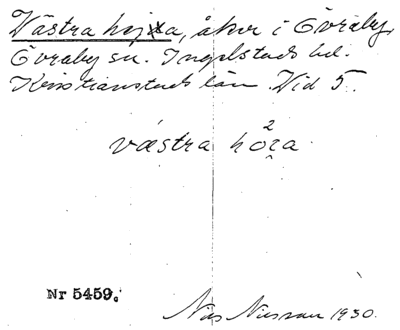 Västra höjxa, åker i Övraby,
Övraby sn. Ingelstads hd.
Kristianstads län. Vid 5.
västra hö2ra
Nr 5459.
Nils Nilsson 1930.